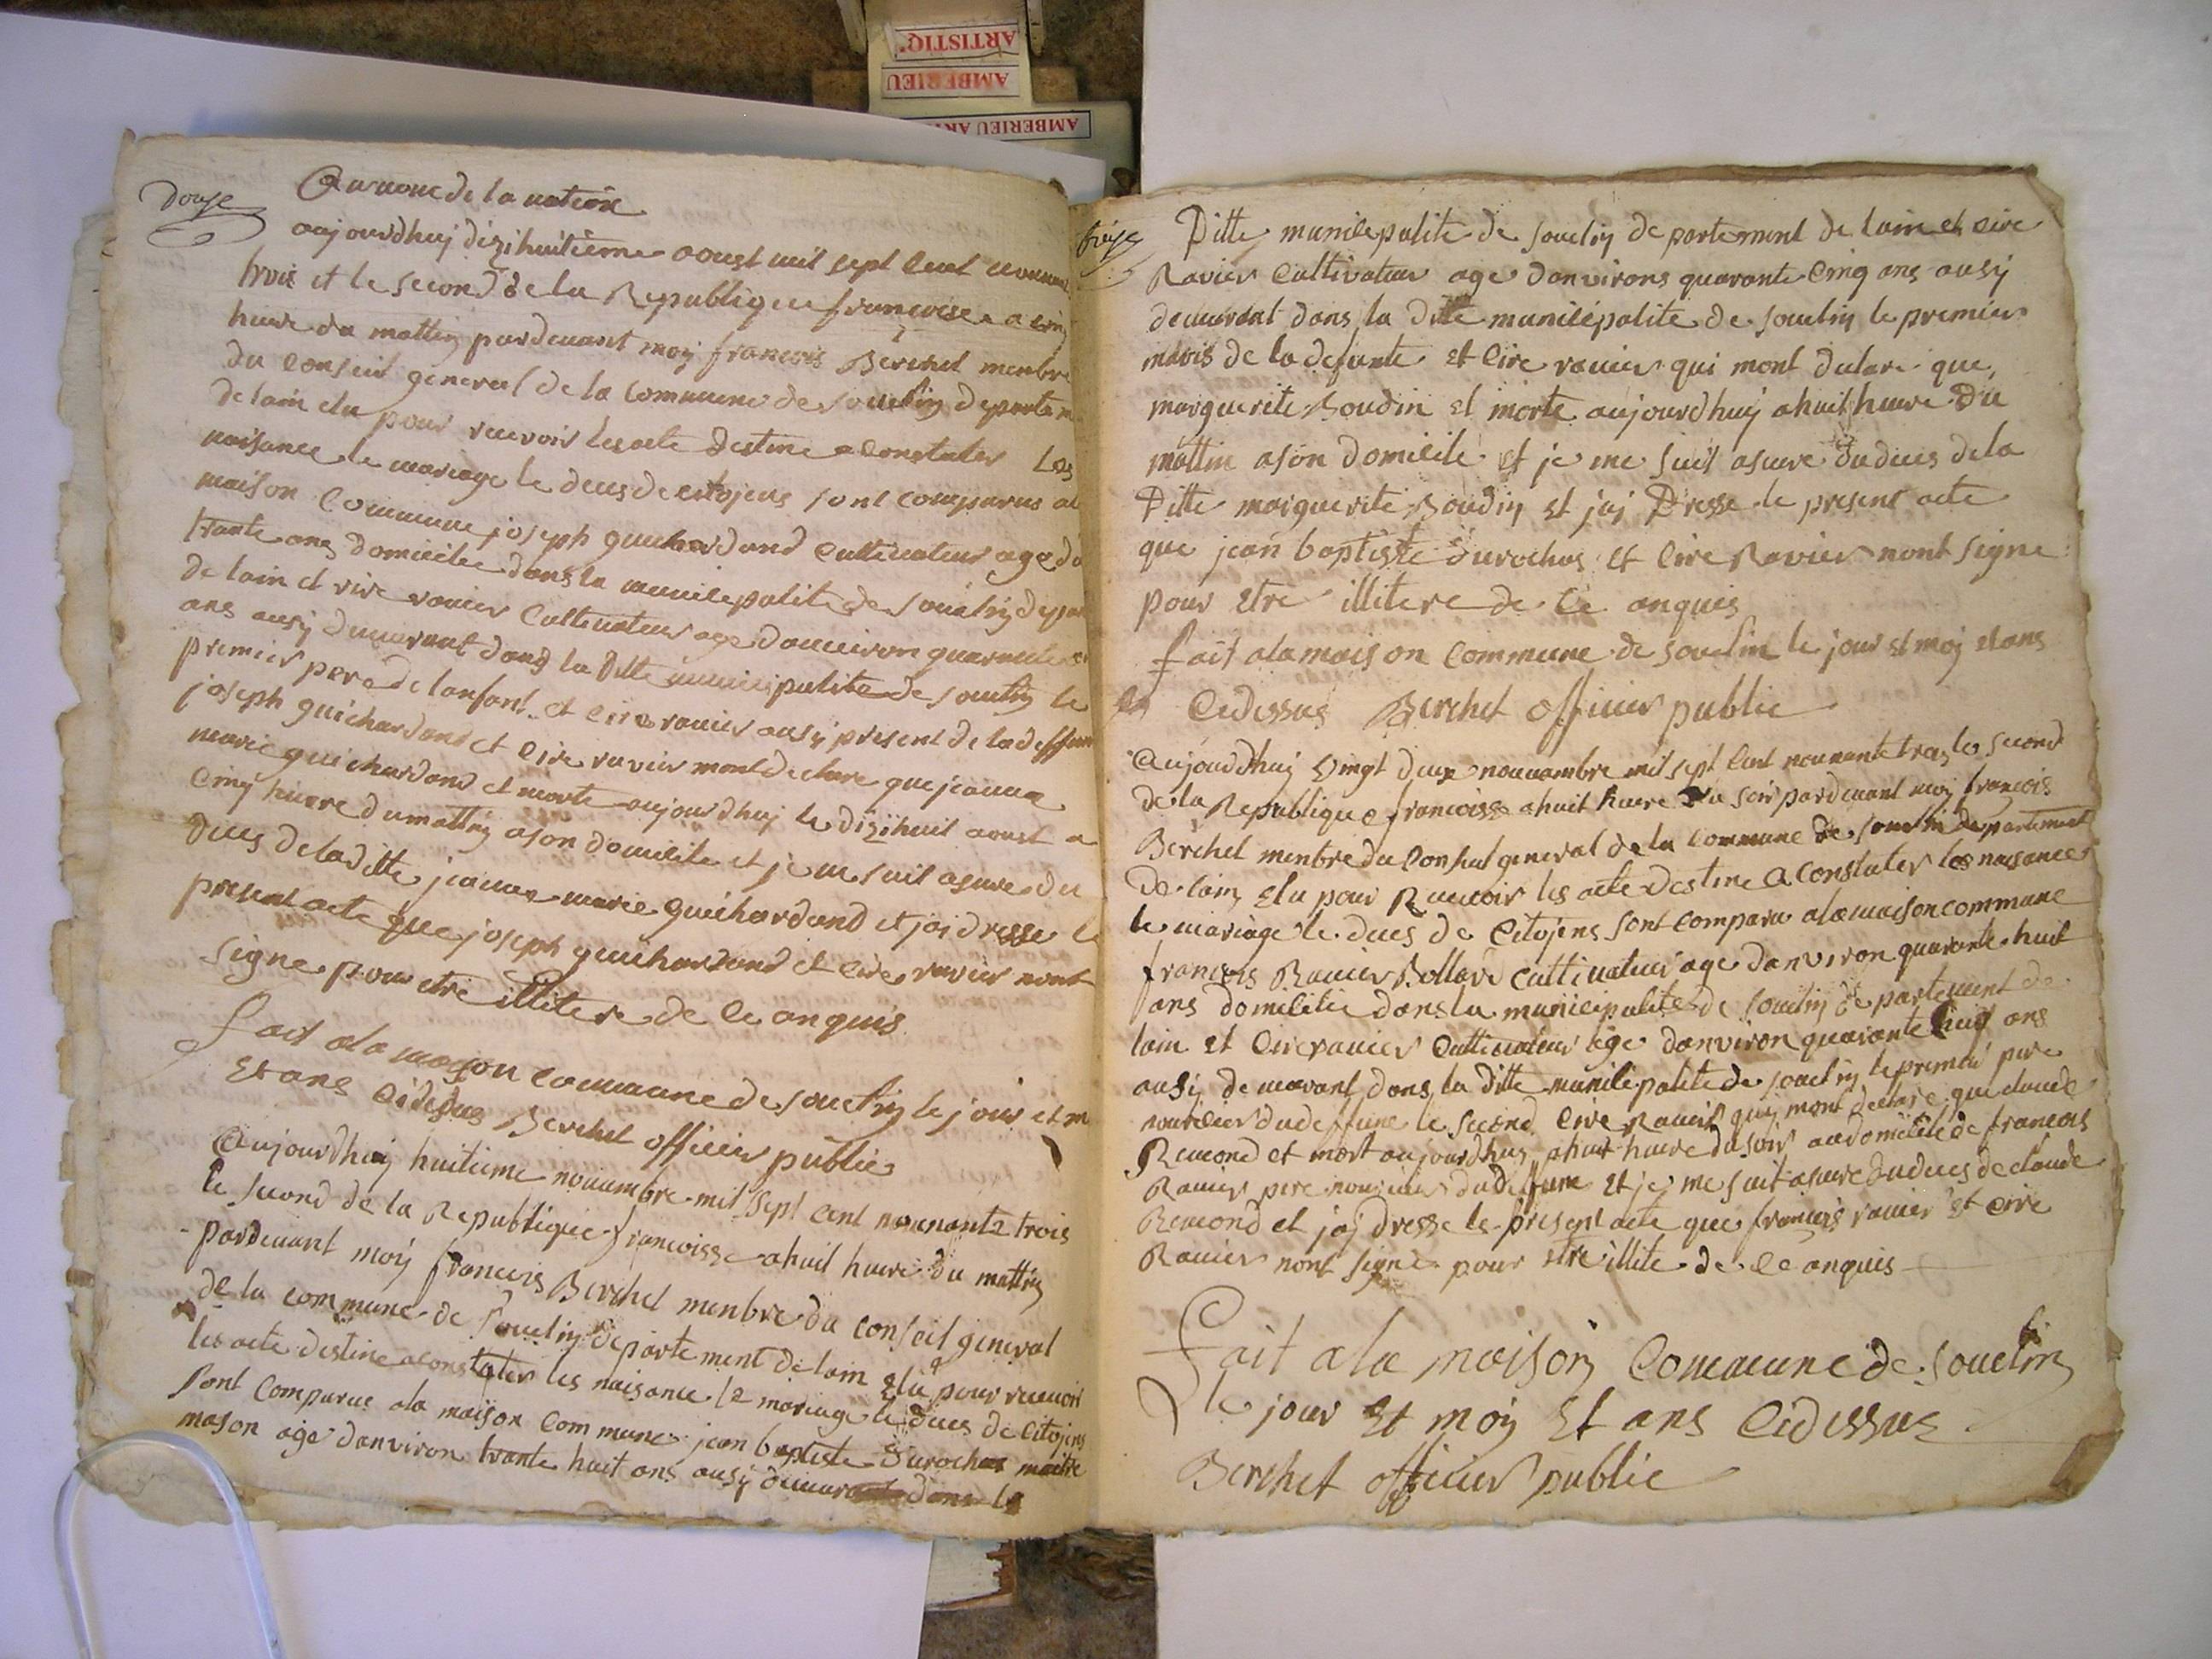 ARTISTIQ'
AMBERIEU
AMBERIEU
douze
Au nome de la nation
aujourdhuj dizihuitieme aoust mil sept cent
trois et le second de la Republique francoise a cin
heure du mattin pardevant moy francois Berchet menbre
du conseil general de la commune de souclin departem
de lain elu pour recevoir les acte destine a constater les
naisance le mariage le deces de citojens sont comparus al
maison commune joseph guichardand cultivateur age da
trante ans domicilie dans la municipalite de souclin depar
de lain et cire ravier cultivateur age danviron quarante
ans ausy demurant dans la ditte municipalite de souclin le
premier pere de lanfant et cire ravier ausy present de la deffun
joseph guichardand et cire ravier mont declare que jeanne
marie guichardand et morte aujourdhuj le dizihuit aoust a
cinq heure du mattin a son domicile et je me suit asure du
deces de la ditte jeanne marie guichardand et jai dresse le
present acte que joseph guichardand et cire ravier nont
signe pour etre illitere de ce anquis
fait a la maison commune de souclin le jour et m
et ans cidesus Berchet officier public
Aujourdhuij huitieme novambre mil sept cent nonante trois
le second de la Republique francoisse a huit heure du mattin
pardevant moij francois Berchet menbre du conseil general
de la commune de souclin departement de lain elu pour recevoir
les acte destine a constater les naisance le mariage le deces de citojens
sont comparus a la maison commune jean baptiste durochas maitre
mason age danviron trante huit ans ausij demurant dans la
treize
Ditte municepalite de souclin departement de lain et cire
Ravier cultivateur age danvirons quarante cinq ans ausij
demurant dans la ditte municepalite de souclin le premier
maris de la defunte et cire ravier qui mont declare que
marguerite Boudin et morte aujourdhuij a huit heure du
mattin a son domicile et je me suis asure du deces de la
Ditte marguerite Boudin et jaj Dresse le present acte
que jean baptiste durochas et cire Ravier nont signe
pour etre illitere de ce anquis
fait a la maison commune de souclin le jour et moij et ans
cidessus Berchet officier public
Aujourdhuij vingt deux novambre mil sept cent nonante trois le second
de la Republique francoisse a huit heure du soir pardevant moij francois
Berchet menbre du conseil general de la commune de souclin departement
de lain elu pour Recevoir les acte destine a constater les naisance
le mariage le deces de citojens sont comparu a la maison commune
francois Ravier Bollard cultivateur age danviron quarante huit
ans domicilie dans la municipalite de souclin departement de
lain et cire ravier cultivateur age danviron quarante huit ans
ausij demurant dans la ditte municepalite de souclin le premier pere
nouricier du deffune le second cire Ravier quij mont declare que claude
Remond et mort aujourdhuy a huit heure du soir au domicile de francois
Ravier pere nouricier du deffune et je me suit asure du deces de claude
Remond et jaj dresse le present acte que francois ravier et cire
Ravier nont signe pour etre illite de ce anquis
fait a la maison commune de souclin
le jour et moij et ans cidessus
Berchet officier public